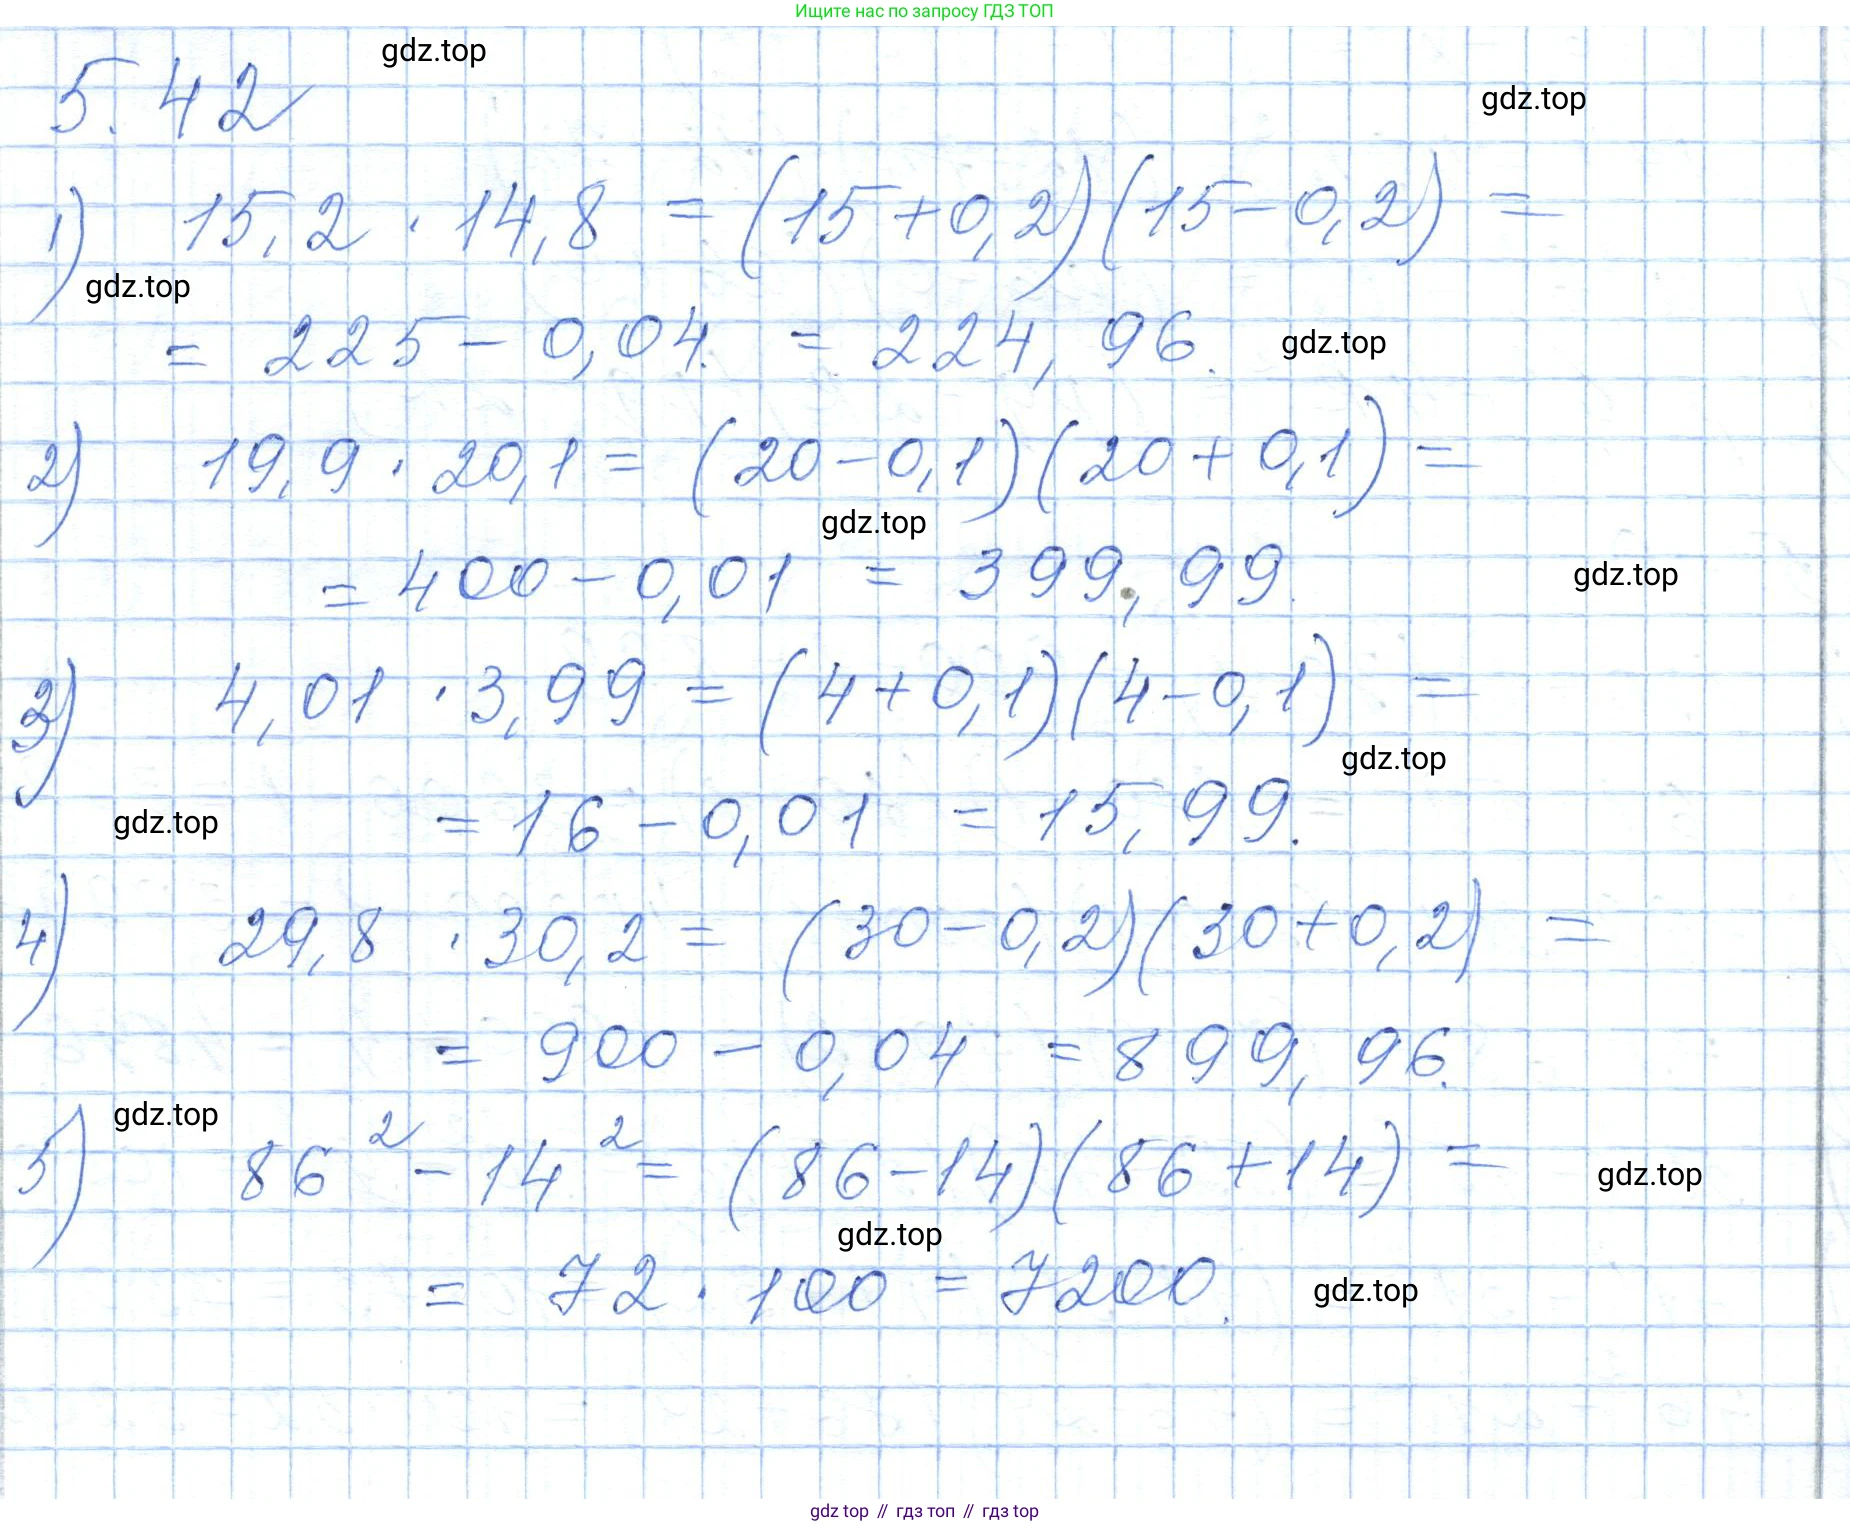 Ищите нас по запросу ГДЗ ТОП
gdz.top
5.42
gdz.top
1) 15,2 · 14,8 = (15+0,2)(15-0,2) =
gdz.top
= 225 - 0,04 = 224,96.
gdz.top
2) 19,9 · 20,1 = (20-0,1)(20+0,1) =
gdz.top
= 400 - 0,01 = 399,99.
gdz.top
3) 4,01 · 3,99 = (4+0,1)(4-0,1) =
gdz.top
gdz.top
= 16 - 0,01 = 15,99.
4) 29,8 · 30,2 = (30-0,2)(30+0,2) =
= 900 - 0,04 = 899,96.
gdz.top
5) 86² - 14² = (86-14)(86+14) =
gdz.top
gdz.top
= 72 · 100 = 7200.
gdz.top
gdz top // гдз топ // gdz top